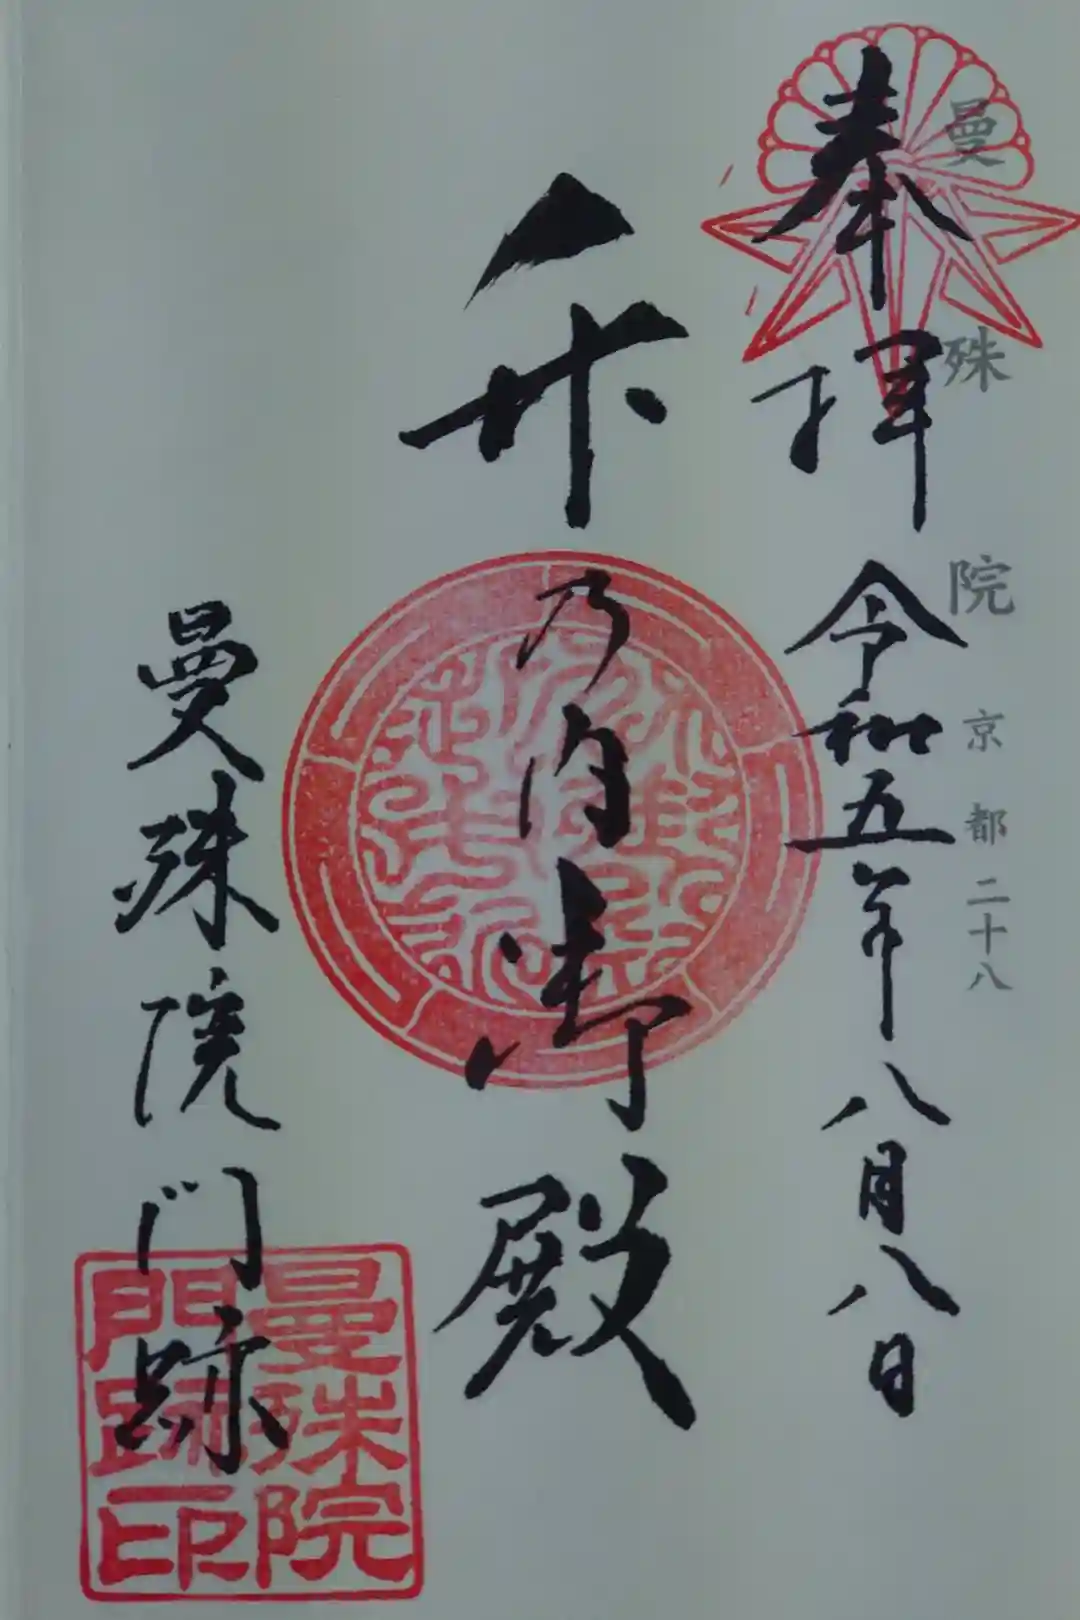 曼殊院 京都二十八
奉拝 令和五年八月八日
竹乃内御殿
曼殊院门跡
曼殊院
門跡印